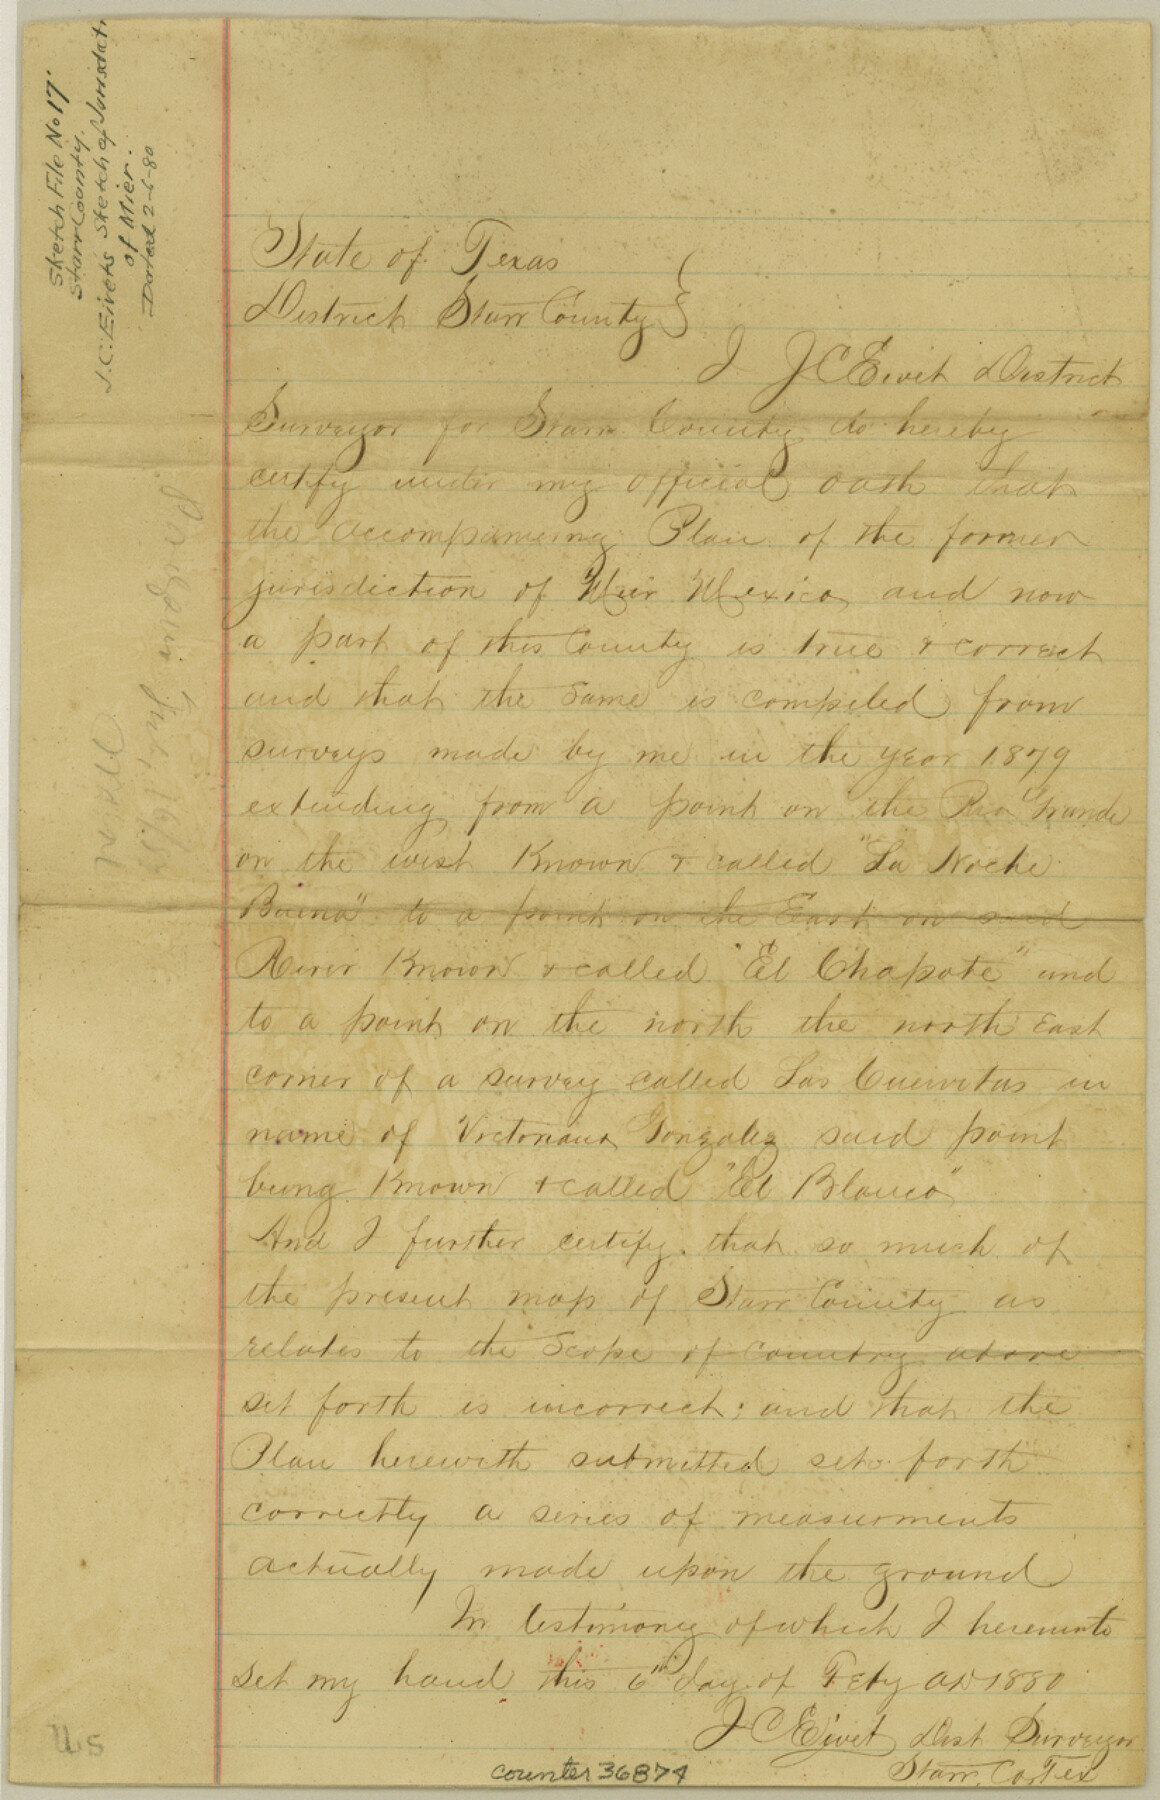 Sketch File No 17.
Starr County.
J.C. Eivets Sketch of Jurisdicti
of Mier.
Dated 2-6-80
State of Texas
District Starr County
I J C Eivet District
Surveyor for Starr County do hereby
certify under my official oath that
the accompaneing Plan of the former
jurisdiction of Mier Mexico and now
a part of this County is true & correct
and that the same is compiled from
surveys made by me in the year 1879
extending from a point on the Rio Grande
on the west Known & called "La Noche
Buena" to a point on the East on said
River Known & called "El Chapote" and
to a point on the north the north East
corner of a survey called Las Cuevitas in
name of Victoriano Gonzalez said point
being Known & called "El Blanco"
And I further certify that so much of
the present map of Starr County as
relates to the Scope of Country above
set forth is incorrect; and that the
Plan herewith submitted sets forth
correctly a series of measurments
actually made upon the ground
In testimony of which I hereunto
set my hand this 6th day of Feby AD 1880
J C Eivet Dist Surveyor
Starr Co Tex
counter 36874